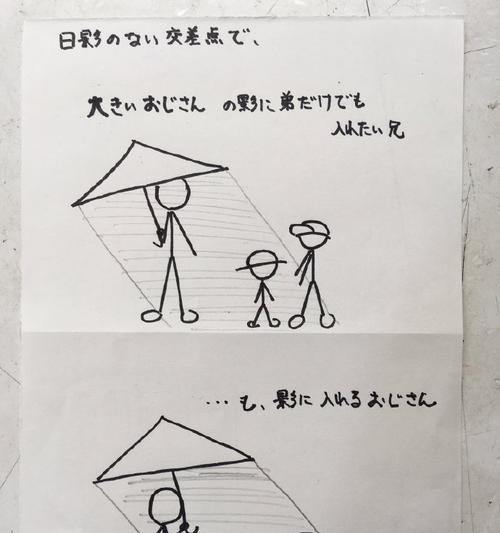 日影のない交差点で、
大きいおじさん の影に弟だけでも
入れたい兄
…も、影に入れるおじさん